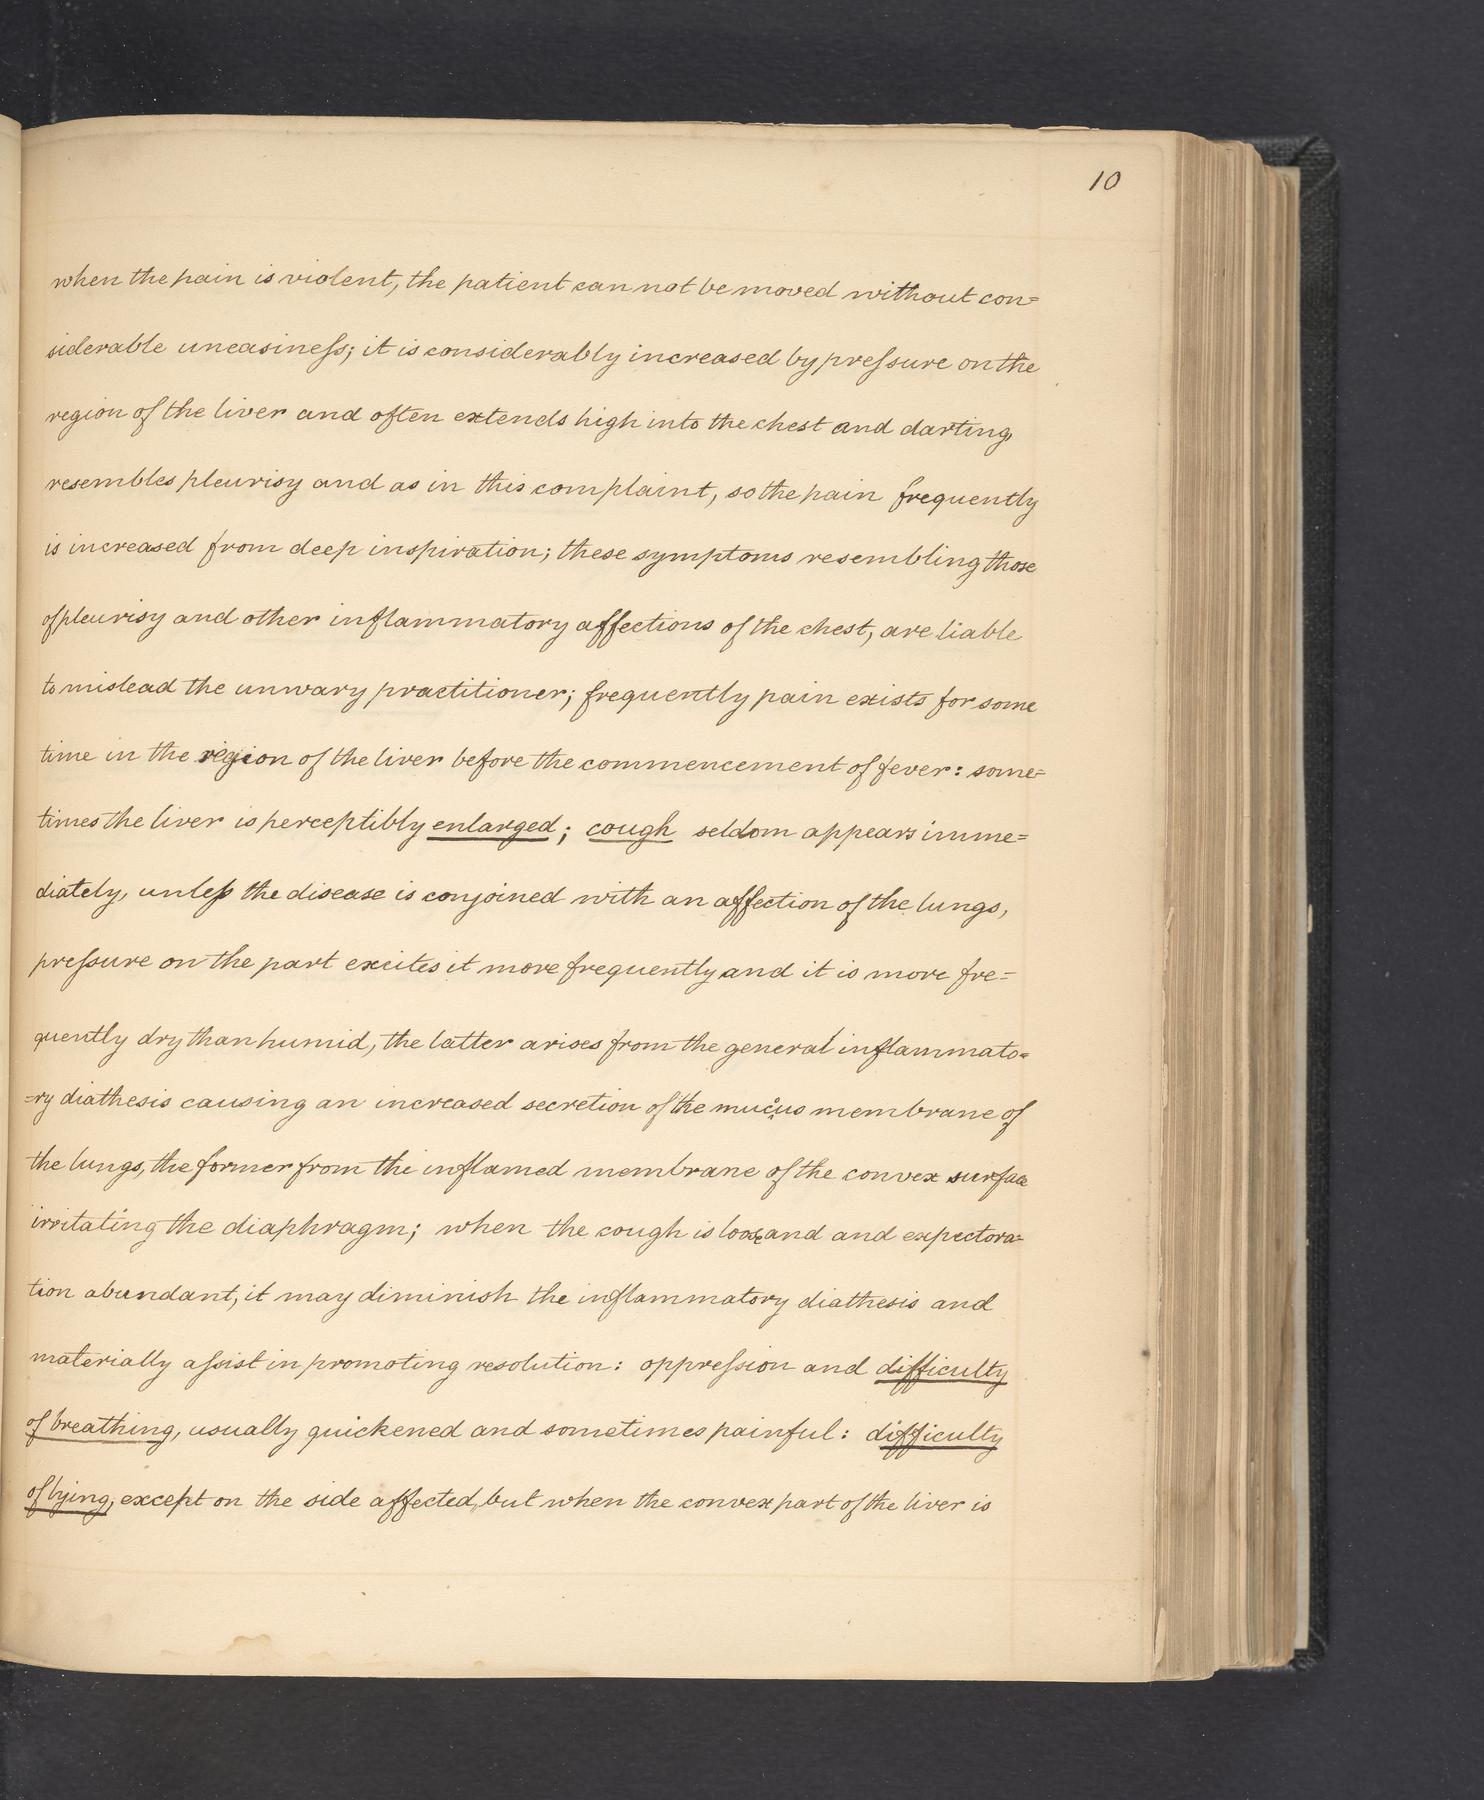 10
when the pain is violent, the patient can not be moved without con=
siderable uneasiness; it is considerably increased by pressure on the
region of the liver and often extends high into the chest and darting,
resembles pleurisy and as in this complaint, so the pain frequently
is increased from deep inspiration; these symptoms resembling those
of pleurisy and other inflammatory affections of the chest, are liable
to mislead the unwary practitioner; frequently pain exists for some
time in the region of the liver before the commencement of fever: some=
times the liver is perceptibly enlarged; cough seldom appears imme=
diately, unless the disease is conjoined with an affection of the lungs,
pressure on the part excites it more frequently and it is more fre=
quently dry than humid, the latter arises from the general inflammato=
=ry diathesis causing an increased secretion of the mucus membrane of
the lungs, the former from the inflamed membrane of the convex surface
irritating the diaphragm; when the cough is loose and and expectora=
tion abundant, it may diminish the inflammatory diathesis and
materially assist in promoting resolution: oppression and difficulty
of breathing, usually quickened and sometimes painful: difficulty
of lying, except on the side affected, but when the convex part of the liver is